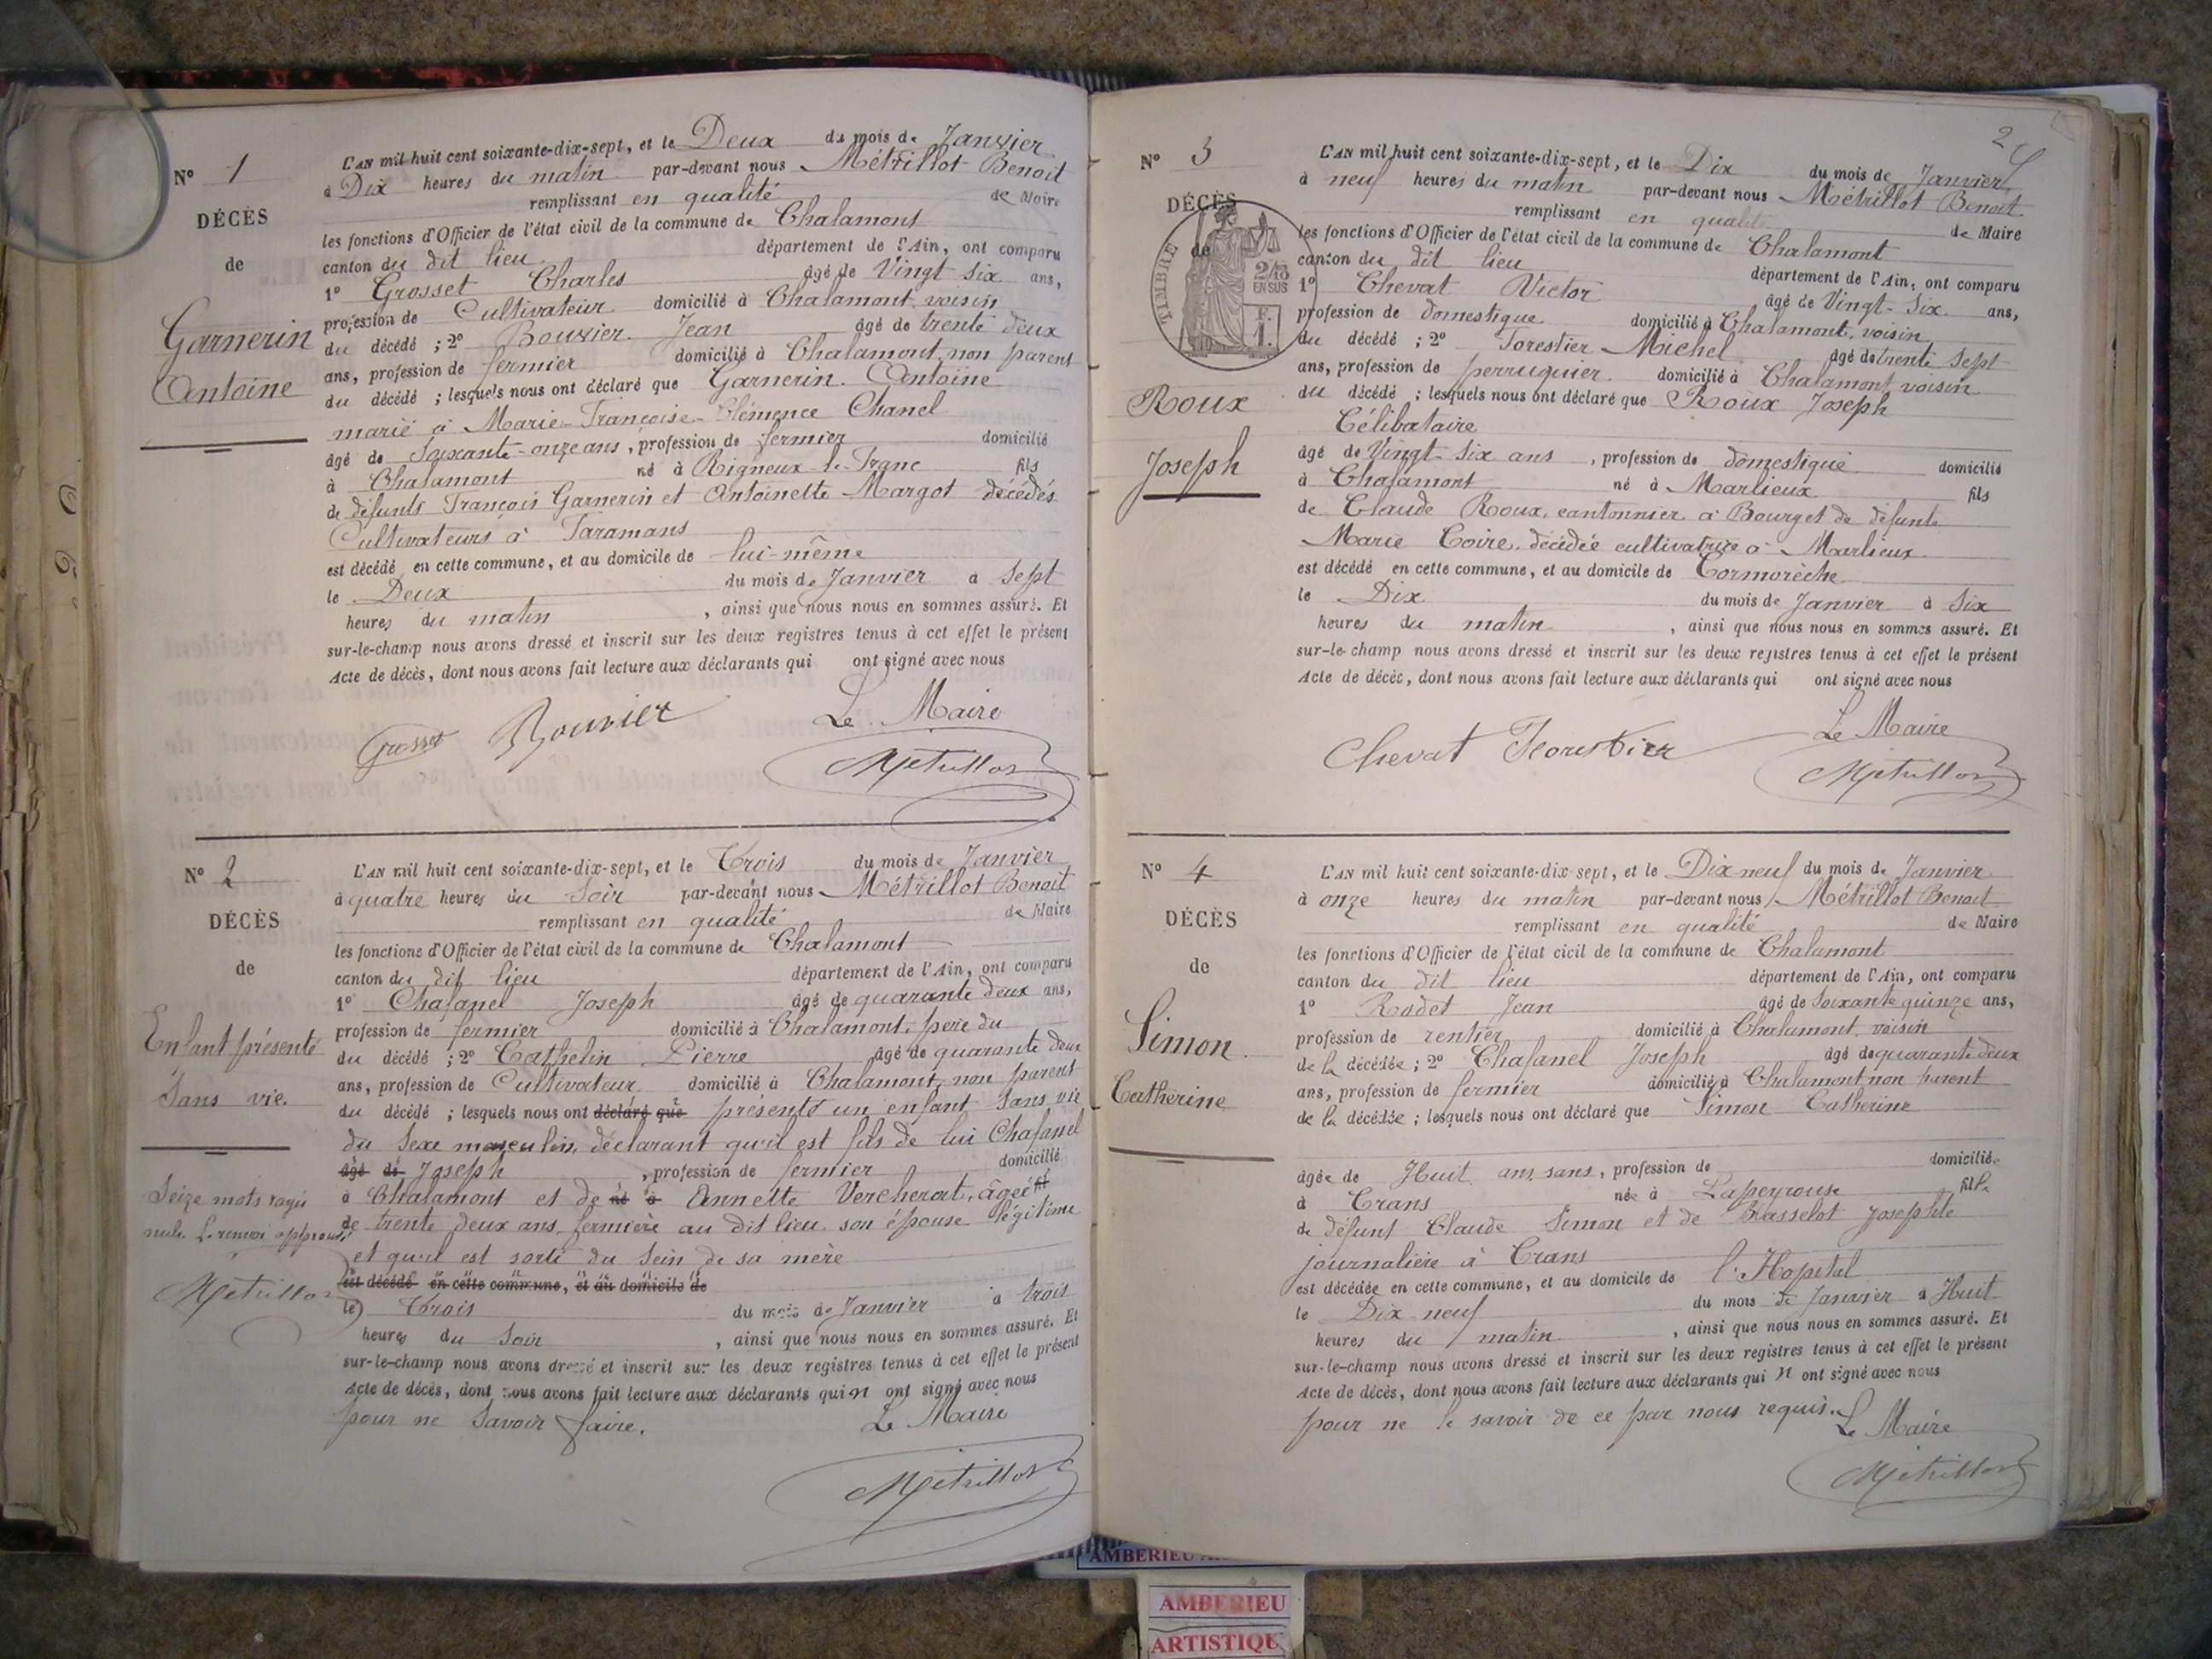 N° 1
DÉCÈS
de
Garnerin
Antoine
L'AN mil huit cent soixante-dix-sept, et le Deux du mois de Janvier
à Dix heures du matin par-devant nous Métrillot Benoit
remplissant en qualité de Maire
les fonctions d'Officier de l'état civil de la commune de Chalamont
canton du dit lieu département de l'Ain, ont comparu
1° Grosset Charles âgé de Vingt-six ans,
profession de Cultivateur domicilié à Chalamont, voisin
du décédé ; 2° Bouvier Jean âgé de trente deux
ans, profession de fermier domicilié à Chalamont, non parent
du décédé ; lesquels nous ont déclaré que Garnerin Antoine
marié à Marie-Françoise-Clémence Chanel
âgé de Soixante-onze ans, profession de fermier domicilié
à Chalamont né à Rigneux-le-Franc fils
de défunts François Garnerin et Antoinette Margot décédés
Cultivateurs à Faramans
est décédé en cette commune, et au domicile de lui-même
le Deux du mois de Janvier à Sept
heures du matin, ainsi que nous nous en sommes assuré. Et
sur-le-champ nous avons dressé et inscrit sur les deux registres tenus à cet effet le présent
Acte de décès, dont nous avons fait lecture aux déclarants qui ont signé avec nous
Grosset Bouvier Le Maire
Métrillot
N° 2
DÉCÈS
de
Enfant présenté
Sans vie.
Seize mots rayés
nuls. Le renvoi approuvé
Métrillot
L'AN mil huit cent soixante-dix-sept, et le Trois du mois de Janvier
à quatre heures du Soir par-devant nous Métrillot Benoit
remplissant en qualité de Maire
les fonctions d'Officier de l'état civil de la commune de Chalamont
canton du dit lieu département de l'Ain, ont comparu
1° Chafanel Joseph âgé de quarante deux ans,
profession de fermier domicilié à Chalamont, père du
du décédé ; 2° Cathelin Pierre âgé de quarante deux
ans, profession de Cultivateur domicilié à Chalamont, non parent
du décédé ; lesquels nous ont déclaré que présenté un enfant Sans vie
du Sexe masculin, déclarant qu'il est fils de lui Chafanel
âgé de Joseph, profession de fermier domicilié
à Chalamont et de né à Annette Vercherat, âgée fil
de trente deux ans, fermière au dit lieu son épouse légitime
et qu'il est sorti du Sein de sa mère
est décédé en cette commune, et au domicile de
le) Trois du mois de Janvier à trois
heures du Soir, ainsi que nous nous en sommes assuré. Et
sur-le-champ nous avons dressé et inscrit sur les deux registres tenus à cet effet le présent
Acte de décès, dont nous avons fait lecture aux déclarants qui n'ont signé avec nous
pour ne Savoir faire. Le Maire
Métrillot
2
N° 3
DÉCÈS
de
TIMBRE
2/10
EN SUS
F.
1.
Roux
Joseph
L'AN mil huit cent soixante-dix-sept, et le Dix du mois de Janvier
à neuf heures du matin par-devant nous Métrillot Benoit
remplissant en qualité de Maire
les fonctions d'Officier de l'état civil de la commune de Chalamont
canton du dit lieu département de l'Ain, ont comparu
1° Chevat Victor âgé de Vingt-Six ans,
profession de domestique domicilié à Chalamont, voisin
du décédé ; 2° Forestier Michel âgé de trente Sept
ans, profession de perruquier domicilié à Chalamont voisin
du décédé ; lesquels nous ont déclaré que Roux Joseph
Célibataire
âgé de Vingt-Six ans, profession de domestique domicilié
à Chalamont né à Marlieux fils
de Claude Roux, cantonnier à Bourget de défunte
Marie Coire, décédée cultivatrice à Marlieux
est décédé en cette commune, et au domicile de Cormorèche
le Dix du mois de Janvier à Six
heures du matin, ainsi que nous nous en sommes assuré. Et
sur-le-champ nous avons dressé et inscrit sur les deux registres tenus à cet effet le présent
Acte de décès, dont nous avons fait lecture aux déclarants qui ont signé avec nous
Chevat Forestier Le Maire
Métrillot
N° 4
DÉCÈS
de
Simon
Catherine
L'AN mil huit cent soixante-dix-sept, et le Dix neuf du mois de Janvier
à onze heures du matin par-devant nous Métrillot Benoit
remplissant en qualité de Maire
les fonctions d'Officier de l'état civil de la commune de Chalamont
canton du dit lieu département de l'Ain, ont comparu
1° Rodet Jean âgé de Soixante quinze ans,
profession de rentier domicilié à Chalamont, voisin
de la décédée ; 2° Chafanel Joseph âgé de quarante deux
ans, profession de fermier domicilié à Chalamont non parent
de la décédée ; lesquels nous ont déclaré que Simon Catherine
âgée de Huit ans, sans, profession de domiciliée
à Crans née à Lapeyrouse fille
de défunt Claude Simon et de Basselot Josephte
journalière à Crans
est décédée en cette commune, et au domicile de l'Hopital
le Dix neuf du mois de Janvier à Huit
heures du matin, ainsi que nous nous en sommes assuré. Et
sur-le-champ nous avons dressé et inscrit sur les deux registres tenus à cet effet le présent
Acte de décès, dont nous avons fait lecture aux déclarants qui n'ont signé avec nous
pour ne le savoir de ce par nous requis. Le Maire
Métrillot
AMBERIEU
AMBERIEU
ARTISTIQU